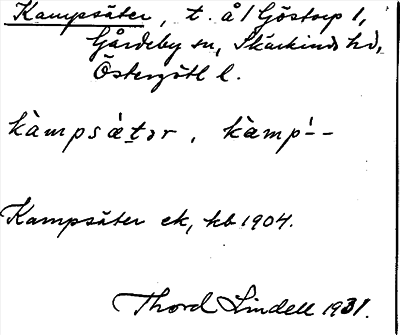 Kampsäter, t. å 1 Göstorp 1,
Gårdeby sn, Skärkinds hd,
Östergötl l.
kàmpsä́tər, kàmp-́-
Kampsäter ek, kb 1904.
Thord Lindell 1931.